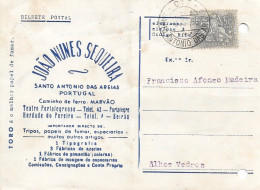 BILHETE POSTAL
TORO é o melhor papel de fumar.
JOÃO NUNES SEQUEIRA
SANTO ANTONIO DAS AREIAS
PORTUGAL
Caminho de ferro: MARVÃO
Teatro Portalegrense - Telef. 43 - Portalegre
Herdade do Pereiro - Telef. 4 - Beirã
IMPORTADOR DIRECTO DE:
Tripas, papeis de fumar, especiarias e
muitos outros artigos
1 Tipografia
2 Fábricas de
1 Fábrica de pimentão (colorau)
1 Fábrica de moagem de especiarias
Comissões, Consignações e Conta Própria
Exmo. Sr.
Francisco Afonso Madeira
Alhos Vedros